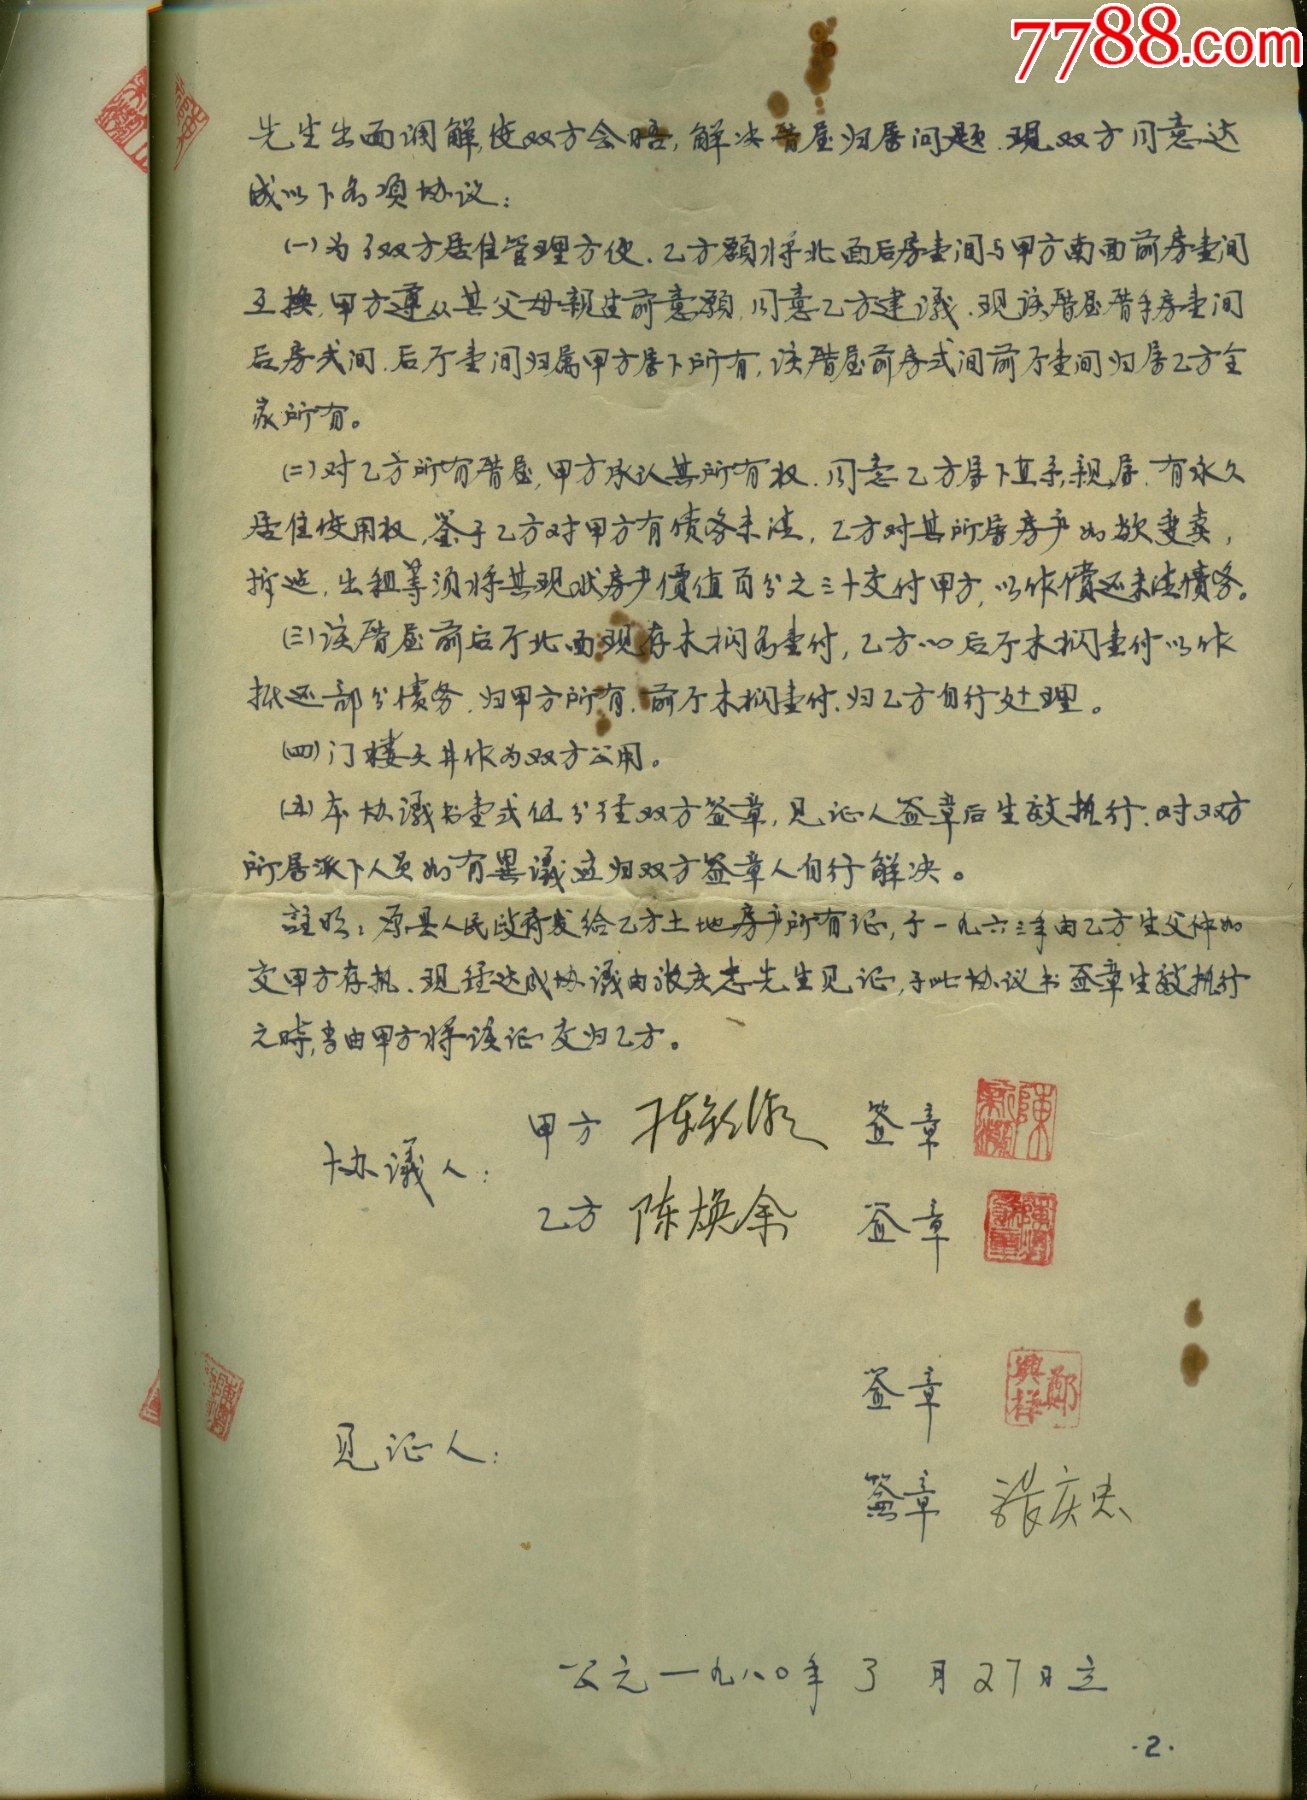 7788.com
先生出面调解,使双方会晤,解决眥屋归属问题.现双方同意达
成以下各项协议:
(一)为了双方居住管理方便.乙方願将北面后房壹间与甲方南面前房壹间
互换,甲方遵从其父母親生前意願,同意乙方建議.现该眥屋眥手房壹间
后房弍间.后厅壹间归属甲方居下所有,该眥屋前房弍间前厅壹间归居乙方全
家所有。
(二)对乙方所有眥屋,甲方承认其所有权.同意乙方居下直系親属.有永久
居住使用权,鉴于乙方对甲方有债务未清,乙方对其所居房产如欲变卖,
拆迁,出租等须将其现状房产價值百分之三十交付甲方,以作償还未清债务。
(三)该眥屋前后厅北面现存木梱各壹付,乙方以后厅木梱壹付以作
抵还部分债务.归甲方所有.前厅木梱壹付.归乙方自行处理。
(四)门楼天井作为双方公用。
(五)本协議书壹式伍分经双方签章,见证人签章后生效执行.对双方
所居派下人员如有異議应归双方签章人自行解决。
註明:原县人民政府发给乙方土地房产所有证,于一九六三年由乙方生父仲如
交甲方存执.现经达成协議由张庆忠先生见证,于此协议书签章生效执行
之時,当由甲方将该证交归乙方。
协議人:
甲方 签章
乙方 陈焕余 签章
见证人:
签章 鄭興祥
签章 张庆忠
公元一九八〇年3月27日立
·2·